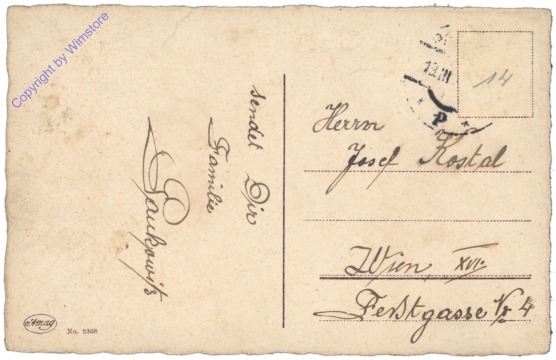 Copyright by Wimstore
sendet Dir
Familie
14
13.VII
P
Herrn
Josef Kostal
Wien, XVI.
Feßtgasse Nr 4
Amag
No. 2368